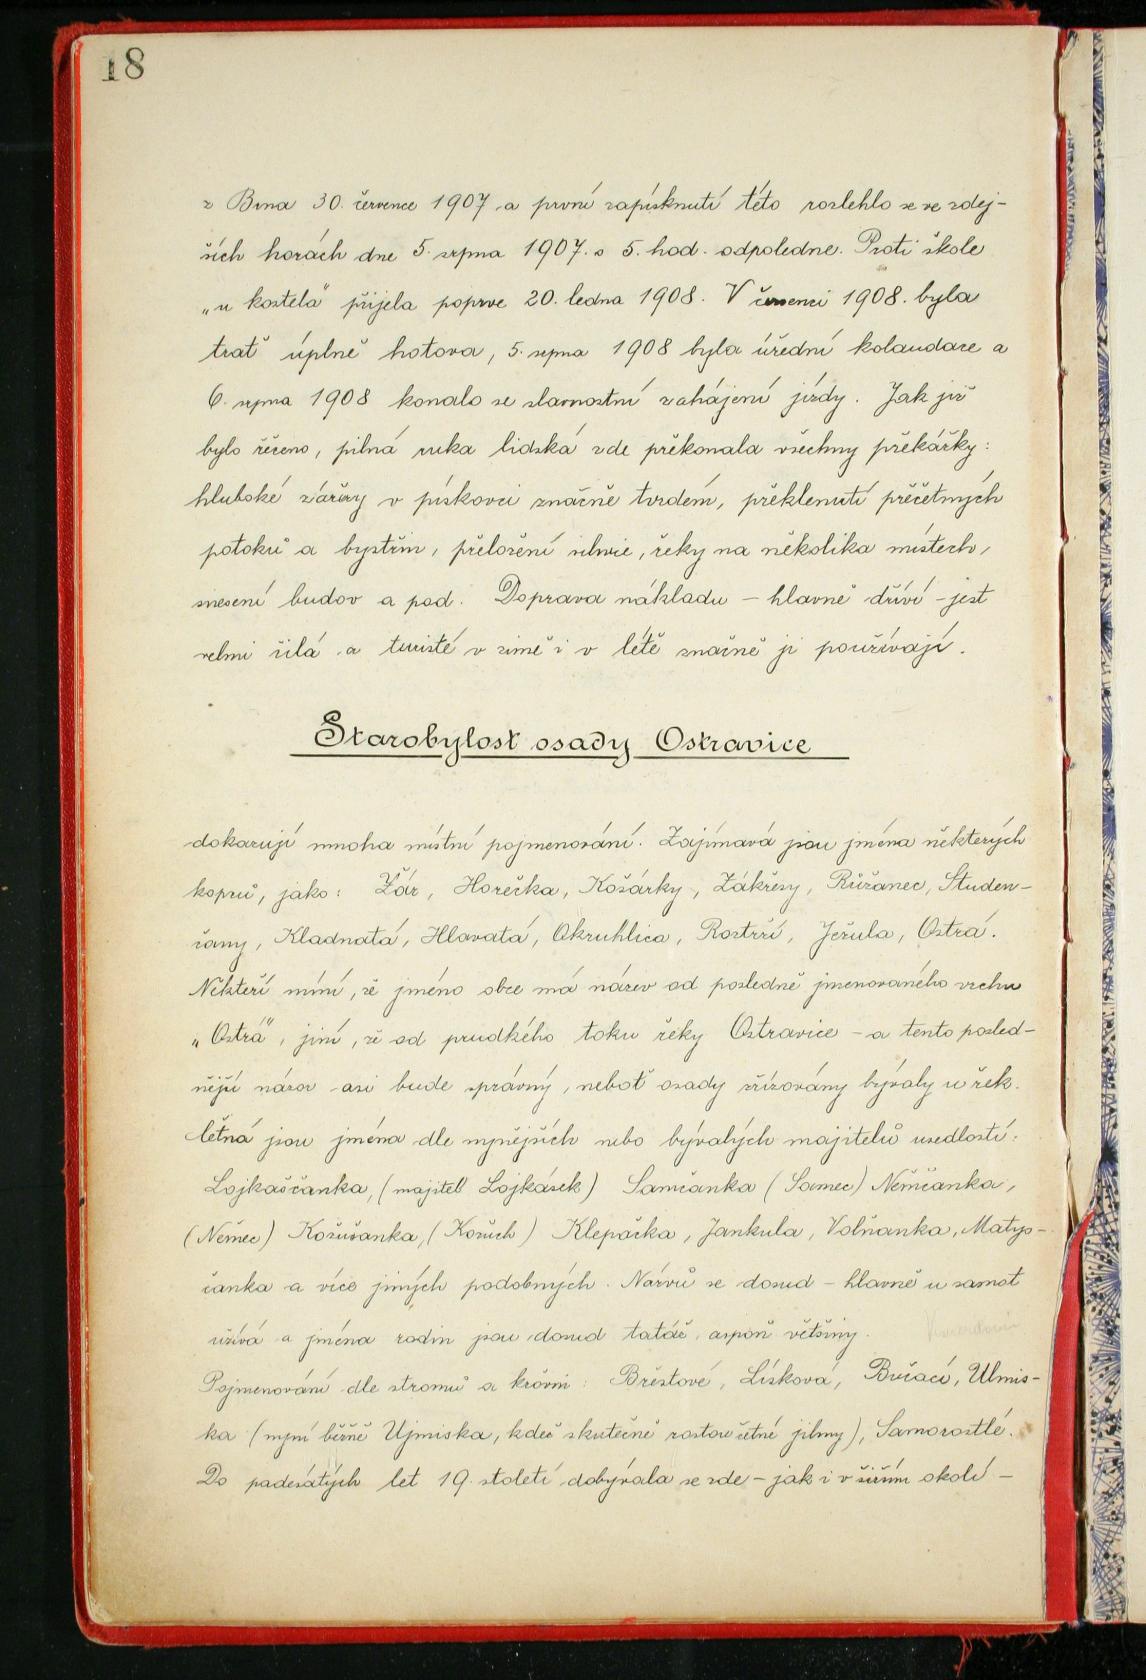 18
z Brna 30. července 1907 a první zapísknutí této rozlehlo se ve zdej-
ších horách dne 5. srpna 1907. o 5. hod. odpoledne. Proti škole
„u kostela" přijela poprve 20. ledna 1908. V červenci 1908. byla
trať úplně hotova, 5. srpna 1908 byla úřední kolaudace a
6. srpna 1908 konalo se slavnostní zahájení jízdy. Jak již
bylo řečeno, pilná ruka lidská zde překonala všechny překážky:
hluboké zářezy v pískovci značně tvrdém, překlenutí přečetných
potoků a bystřin, přeložení silnice, řeky na několika místech,
snesení budov a pod. Doprava nákladu – hlavně dříví – jest
velmi čilá a turisté v zimě i v létě značně ji používají.
Starobylost osady Ostravice
dokazují mnoha místní pojmenování. Zajímavá jsou jména některých
kopců, jako: Žár, Horečka, Košárky, Zákřesy, Růžanec, Studen-
čany, Kladnatá, Hlavatá, Okruhlica, Roztrží, Ježula, Ostrá.
Někteří míní, že jméno obce má název od posledně jmenovaného vrchu
„Ostrá", jiní, že od prudkého toku řeky Ostravice – a tento posled-
nější názor asi bude správný, neboť osady zřizovány bývaly u řek.
četná jsou jména dle nynějších nebo bývalých majitelů usedlostí:
Lojkaščanka, (majitel Lojkásek) Samčanka (Samec) Němčanka,
(Němec) Kožušanka, (Kožuch) Klepáčka, Jankula, Volňanka, Matys-
čanka a více jiných podobných. Názvů se dosud – hlavně u samot
užívá a jména rodin jsou dosud tatáž, aspoň většiny.
Pojmenování dle stromů a křovin: Břestové, Lísková, Bučací, Ulmis-
ka (nyní běžně Ujmiska, kdež skutečně rostou četné jilmy), Samorostlé.
Do padesátých let 19. století dobývala se zde – jak i v širším okolí –